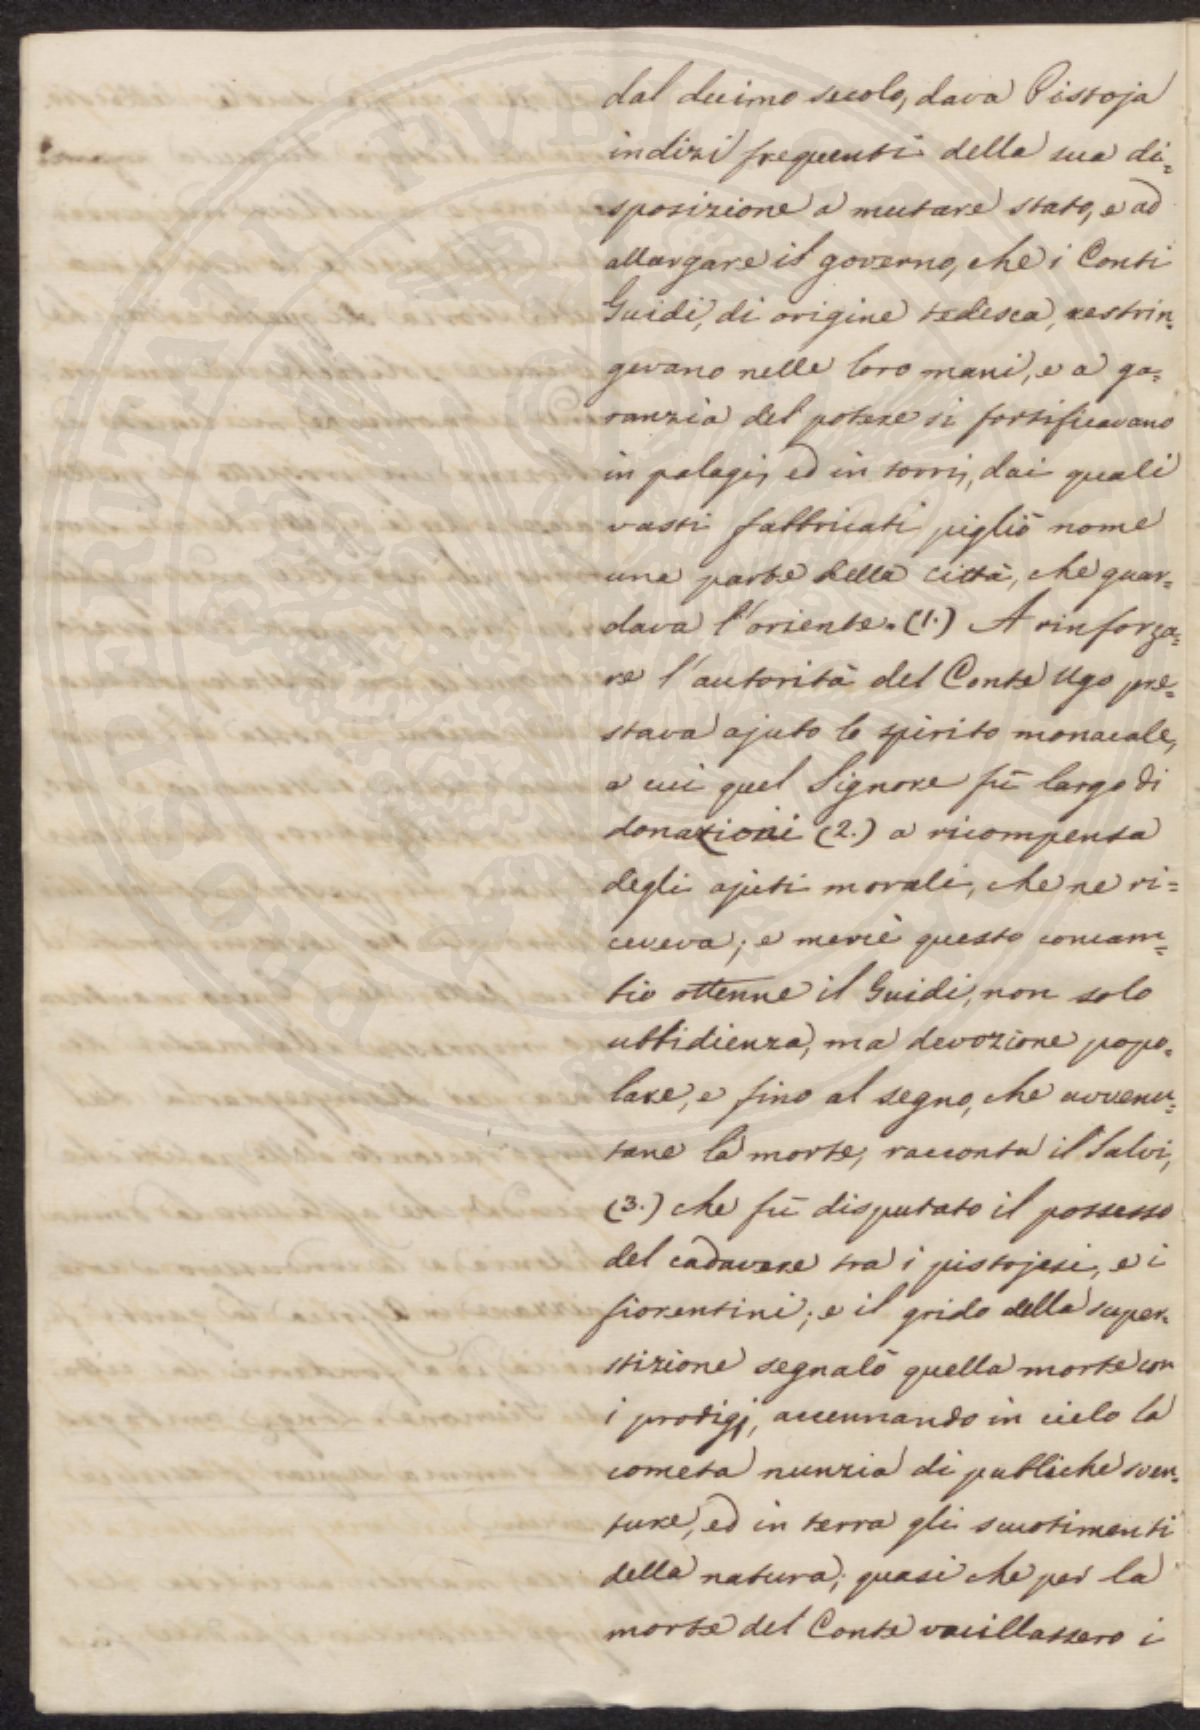 dal decimo secolo, dava Pistoja
indizi frequenti della sua di=
sposizione a mutare stato, e ad
allargare il governo, che i Conti
Guidi, di origine tedesca, restrin=
gevano nelle loro mani, e a ga=
ranzia del potere si fortificavano
in palagi, ed in torri, dai quali
vasti fabbricati pigliò nome
una parte della città, che guar=
dava l'oriente. (1.) A rinforza=
re l'autorità del Conte Ugo pre=
stava ajuto lo spirito monacale,
a cui quel Signore fù largo di
donazioni (2.) a ricompensa
degli ajuti morali, che ne ri=
ceveva; e mercè questo concam=
bio ottenne il Guidi, non solo
ubbidienza, ma devozione popo=
lare, e fino al segno, che avvenu=
tane la morte, racconta il Salvi,
(3.) che fù disputato il possesso
del cadavere tra i pistojesi, e i
fiorentini; e il grido della super=
stizione segnalò quella morte con
i prodigj, accennando in cielo la
cometa nunzia di pubbliche sven=
ture, ed in terra gli scuotimenti
della natura; quasi che per la
morte del Conte vacillassero i
POSTERITATI PVBLICAE